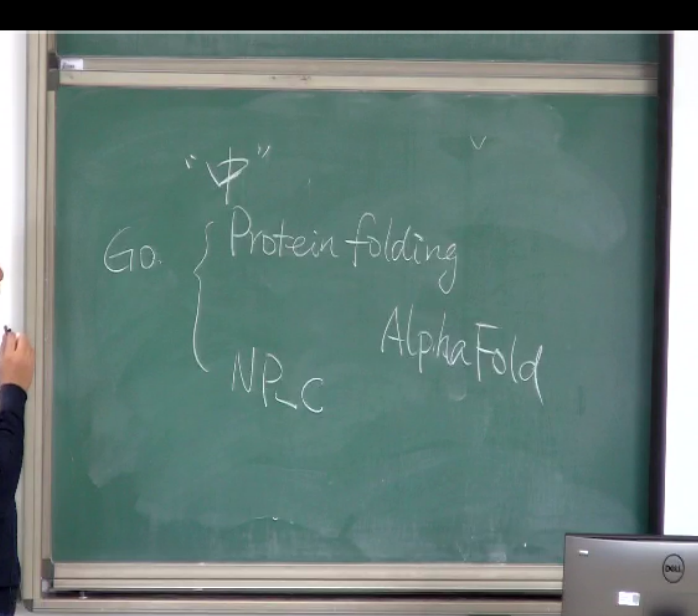 “中”
Go. Protein folding
AlphaFold
NP_C
DELL